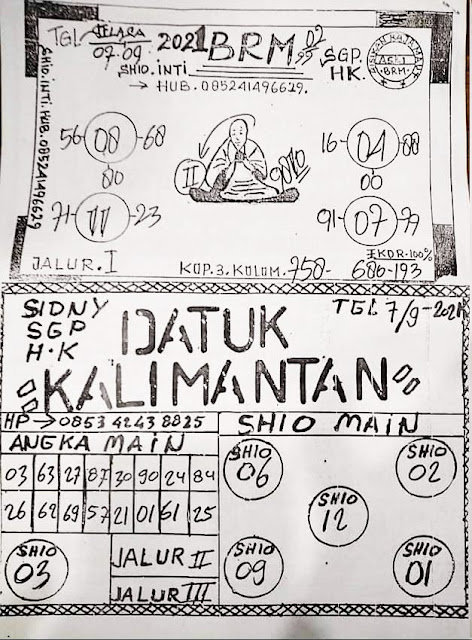 TGL. SELASA 07-09 2021 BRM 02
SHIO.INTI
SGP.
HK.
→ HUB. 085241496629.
ASLI
BRM
SHIO.INTI.HUB.085241496629
56 08 -68
00
16- 04 -88
00
II
9870
71- 11 -23
91- 07 -77
EKOR-100%
JALUR.I
KOP.3.KOLOM. 758- 686-193
SIDNY
SGP
H.K
TGL 7/9-2021
DATUK
KALIMANTAN
HP → 0853 4243 8825
SHIO MAIN
ANGKA MAIN
03 63 27 87 30 90 24 84
26 62 69 57 21 01 61 25
SHIO
06
SHIO
02
SHIO
12
SHIO
03
JALUR II
JALUR III
SHIO
09
SHIO
01